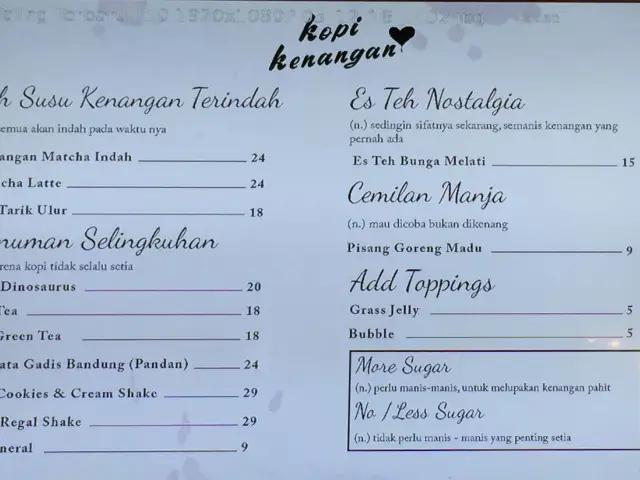 kopi
kenangan
h Susu Kenangan Terindah
emua akan indah pada waktu nya
angan Matcha Indah 24
cha Latte 24
Tarik Ulur 18
numan Selingkuhan
rena kopi tidak selalu setia
Dinosaurus 20
Tea 18
Green Tea 18
ata Gadis Bandung (Pandan) 24
Cookies & Cream Shake 29
Regal Shake 29
neral 9
Es Teh Nostalgia
(n.) sedingin sifatnya sekarang, semanis kenangan yang
pernah ada
Es Teh Bunga Melati 15
Cemilan Manja
(n.) mau dicoba bukan dikenang
Pisang Goreng Madu 9
Add Toppings
Grass Jelly 5
Bubble 5
More Sugar
(n.) perlu manis-manis, untuk melupakan kenangan pahit
No / Less Sugar
(n.) tidak perlu manis - manis yang penting setia